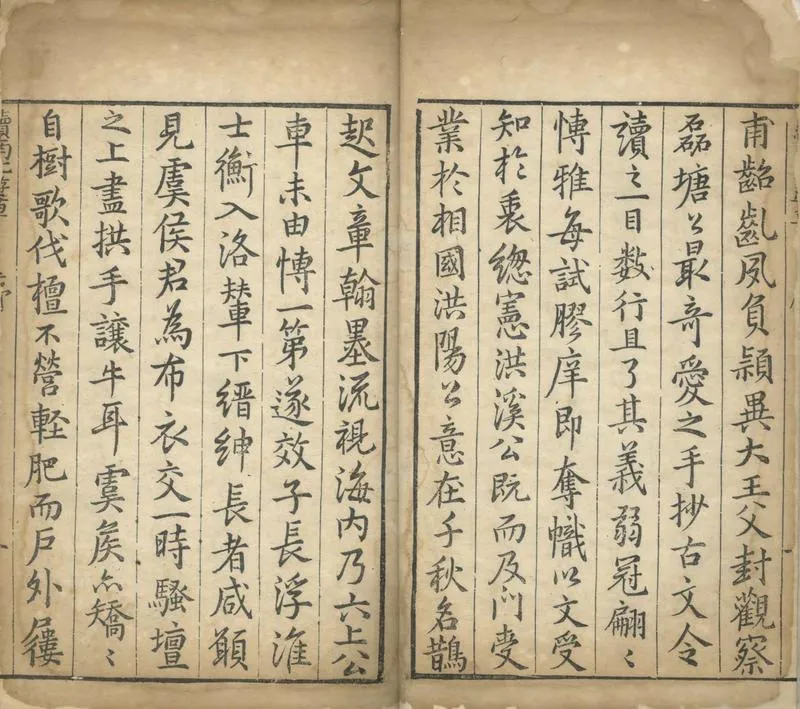 甫齠齓夙負穎異大王父封觀察
磊塘公最奇愛之手抄古文令
讀之一目數行且了其義弱冠翩〻
愽雅每試膠庠即奪幟以文受
知於裒緫憲洪溪公既而及门受
業於相國洪陽公意在千秋名鵲
起文章翰墨流視海内乃六上公
車未由愽一第遂效子長浮淮
士衡入洛輦下縉紳長者咸願
見虞侯君為布衣交一時騷壇
之上盡拱手讓牛耳虞矦亦矯〻
自樹歌伐檀不營軽肥而戶外屨